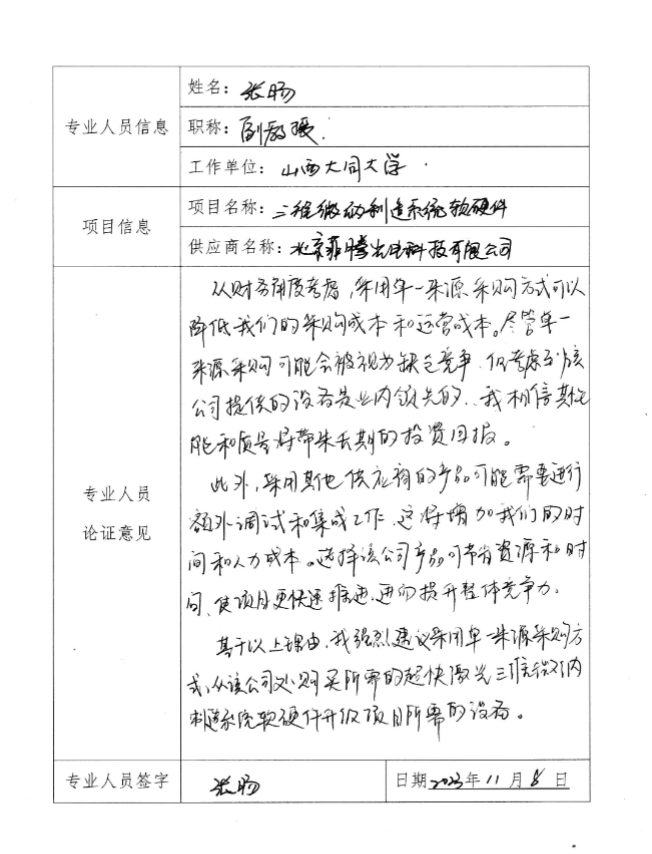 专业人员信息
姓名：张肠
职称：副教授.
工作单位：山西大同大学.
项目信息
项目名称：三维微纳制造系统软硬件
供应商名称：北京菲腾光电科技有限公司
专业人员
论证意见
从财务角度考虑，采用单一来源采购方式可以
降低我们的采购成本和运营成本。尽管单一
来源采购可能会被视为缺乏竞争，但考虑到该
公司提供的设备是业内领先的，我相信其性
能和质量将带来长期的投资回报。
此外，采用其他供应商的产品可能需要进行
额外调试和集成工作，这将增加我们的时
间和人力成本。选择该公司产品可节省资源和时
间，使项目更快速推进，进而提升整体竞争力.
基于以上理由，我强烈建议采用单一来源采购方
式，从该公司处购买所需的超快激光三维微纳
制造系统软硬件升级项目所需的设备。
专业人员签字
张肠
日期2023年11月8日